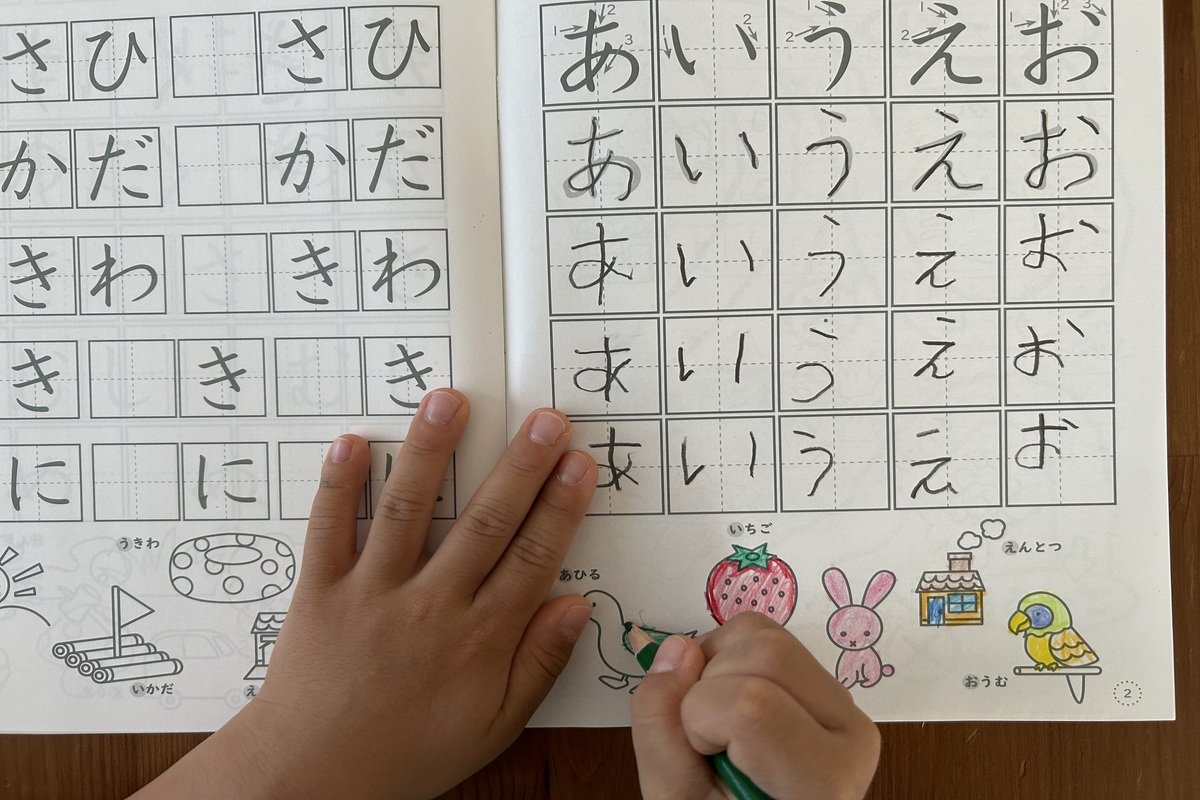 さ ひ さ ひ
か だ か だ
き わ き わ
き き き
に に
うきわ
いかだ
え
あ い う え お
あ い う え お
あ い う え お
あ い う え お
あ い う え お
いちご
えんとつ
あひる
おうむ
2